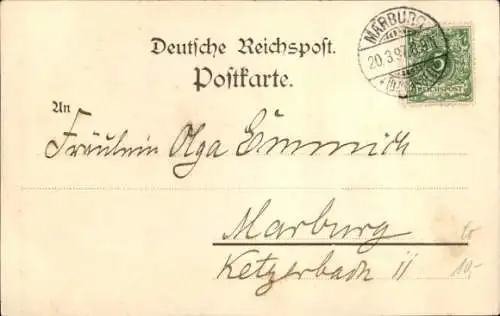 Deutsche Reichspost.
Postkarte.
MARBURG
20.3.97.
REICHSPOST
An
Fräulein Olga Emmrich
Marburg
Ketzerbach 11
10,-